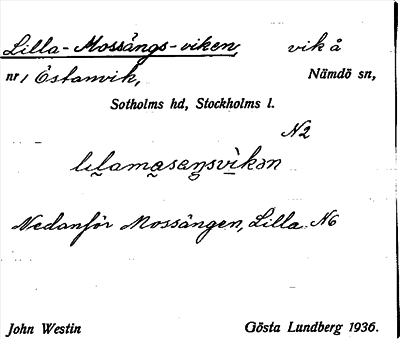 Lilla-Mossängs-viken, vik å
nr 1 Östanvik, Nämdö sn,
Sotholms hd, Stockholms l.
N2
lılamasaŋsvìkən
Nedanför Mossängen, Lilla. N6
John Westin Gösta Lundberg 1936.